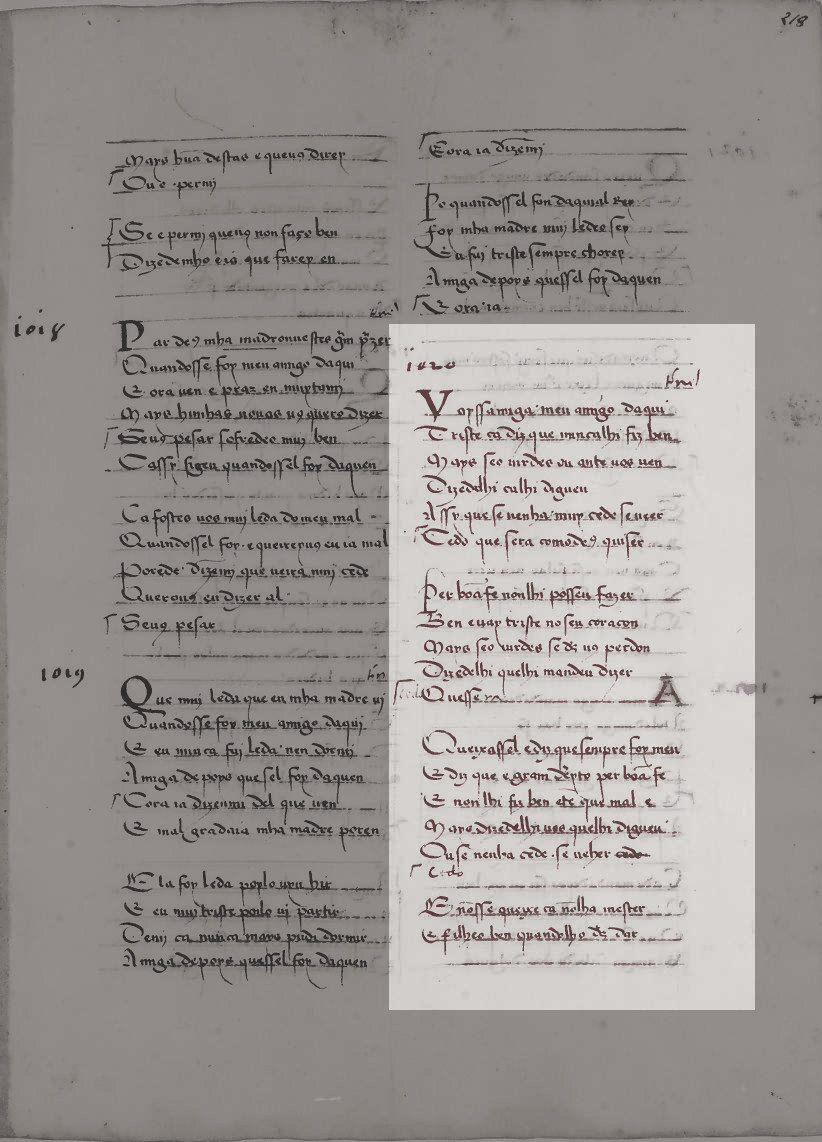 218
Mays hũa destas e queuꝯ direy
Oue ꝑmj
Se e permj queuꝯ non faço ben
Dizedemho e ia que farey en
1018
Par deꝯ mha madr ouuestes g̃m p̃zer
Quandosse foy meu amigo daqui
E ora uen e praz en muytomj
Mays hunhas nouas uꝯ quero dizer
Seuꝯ pesar sofredeo muj ben
Cassy figeu quandossel foy daquen
Ca fostes uos muj leda do meu mal
Quandossel foy e queireyuꝯ eu ia mal
Porede dizemj que ueirá muj cede
Querouꝯ eu dizer al
Seuꝯ pesar
1019
Que muj leda que eu mha madre uj
Quandosse foy meu amigo daqui
E eu nunca fuj leda nen dormj
Amiga depoys que sel foy daquen
Eora ia dizenmi del que uen
E mal gradaia mha madre poren
Ela foy leda poylo uyu hir
E eu muj triste poilo uj partir
Demj ca nunca mays pudi dormir
Amiga depoys quessel foy daquen
Eora ia dizemj
Pe quandossel foi daquial rey
Foy mha madre muj ledro sey
E eu fuj triste sempre chorey
Amiga depoys quessel foy daquen
E ora ia
1020
Voyssamiga meu amigo daqui
Triste ca diz que nuncalhi fiz ben
Mays seo uirdes ou ante uos uen
Dizedelhi calhi digueu
Assy que se uenha muy cede se ueer
Cedo que sera comodeꝯ quiser
Per boa fe nonlhi posseu fazer
Ben e uay triste no seu coraçon
Mays seo uirdes se dꝯ uꝯ perdon
Dizedelhi quelhi mandeu dizer
Quesse
A
Queixassel e diz que sempre foy meu
E diz que e gram deyto per boa fe
E nonlhi fiz ben e te que mal e
Mays dizedelhi uos quelhi digueu
Ou se uenha cede se ueher cedo
Cedo
E nosse queyxe ca nolha mester
E filheo ben quandolho dꝯ der